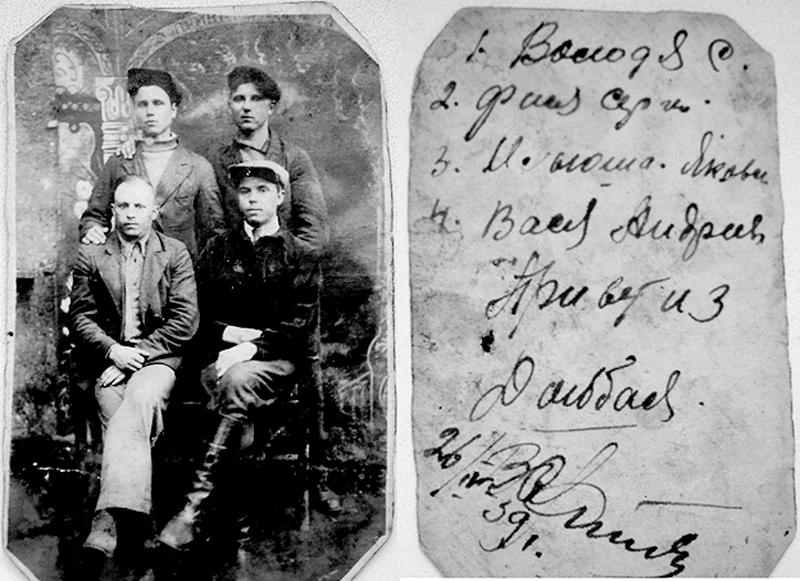 1. Володя С.
2. Филя Серг.
3. Илюша. Якови
4. Вася Андрив
Привет из
Донбася.
26/IV
39 г.